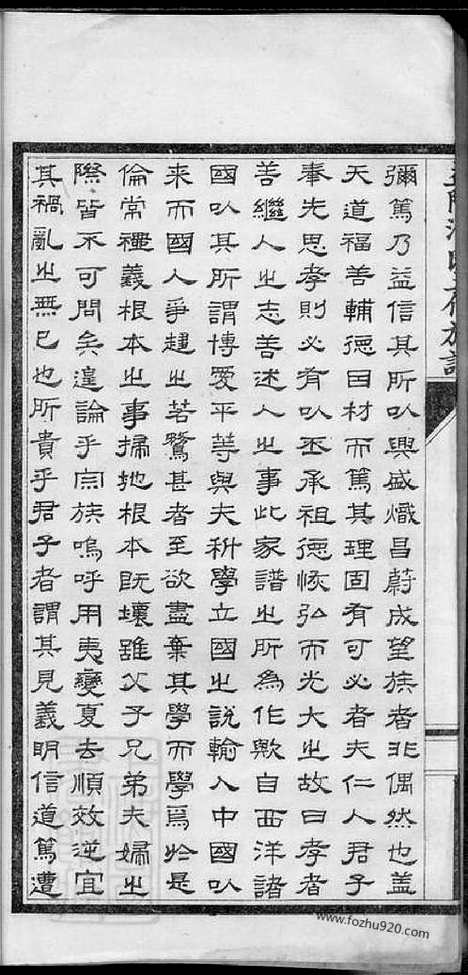 彌篤乃益信其所以興盛熾昌蔚成望族者非偶然也蓋
天道福善輔德因材而篤其理固有可必者夫仁人君子
奉先思孝則必有以丕承祖德恢弘而光大之故曰孝者
善繼人之志善述人之事此家譜之所為作歟自西洋諸
國以其所謂博愛平等與夫科學立國之說輸入中國以
來而國人爭趨之若鶩甚者至欲盡棄其學而學焉於是
倫常禮義根本之事掃地根本既壞雖父子兄弟夫婦之
際皆不可問矣遑論乎宗族嗚呼用夷變夏去順效逆宜
其禍亂之無已也所貴乎君子者謂其見義明信道篤遭
www.fozhu920.com